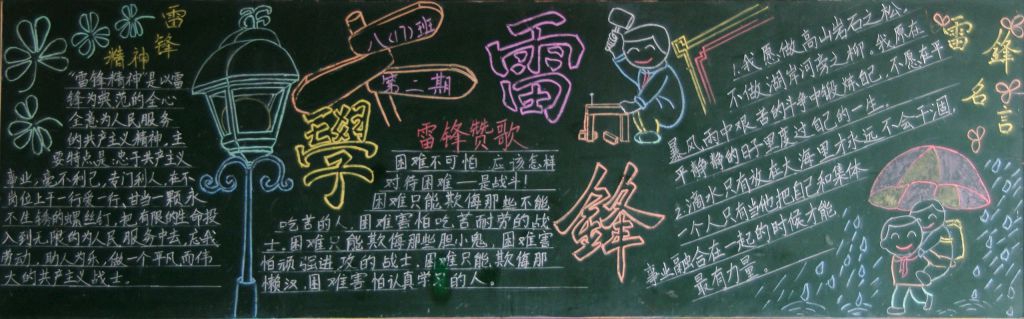 雷锋
精神
“雷锋精神”是以雷
锋为典范的全心
全意为人民服务
的共产主义精神,主
要特点是:忠于共产主义
事业,毫不利己,专门利人,在不
岗位上干一行爱一行,甘当一颗永
不生锈的螺丝钉,把有限的生命投
入到无限的为人民服务中去,忘我
劳动,助人为乐,做一个平凡而伟
大的共产主义战士。
八(17)班
第二期
學雷锋
雷锋赞歌
困难不可怕,应该怎样
对待困难——是战斗!
困难只能欺侮那些不能
吃苦的人,困难害怕吃苦耐劳的战
士,困难只能欺侮那些胆小鬼,困难害
怕顽强进攻的战士,困难只能欺侮那
懒汉,困难害怕认真学习的人。
雷锋名言
1.我愿做高山岩石之松,
不做湖岸河旁之柳,我愿在
暴风雨中艰苦的斗争中锻炼自己,不愿在平
平静静的日子里度过自己的一生。
2.滴水只有放在大海里才永远不会干涸
一个人只有当他把自己和集体
事业融合在一起的时候才能
最有力量。